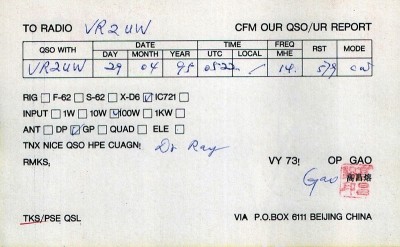 TO RADIO VR2UW CFM OUR QSO/UR REPORT
QSO WITH DATE TIME FREQ RST MODE
DAY MONTH YEAR UTC LOCAL MHz
VR2UW 29 04 95 0522 / 14. 579 CW
RIG □ F-62 □ S-62 □ X-D6 ☑ IC721
INPUT □ 1W □ 10W ☑ 100W □ 1KW
ANT □ DP ☑ GP □ QUAD □ ELE □
TNX NICE QSO HPE CUAGN! Dr Ray
RMKS, VY 73! OP GAO
Gao
TKS/PSE QSL VIA P.O.BOX 6111 BEIJING CHINA